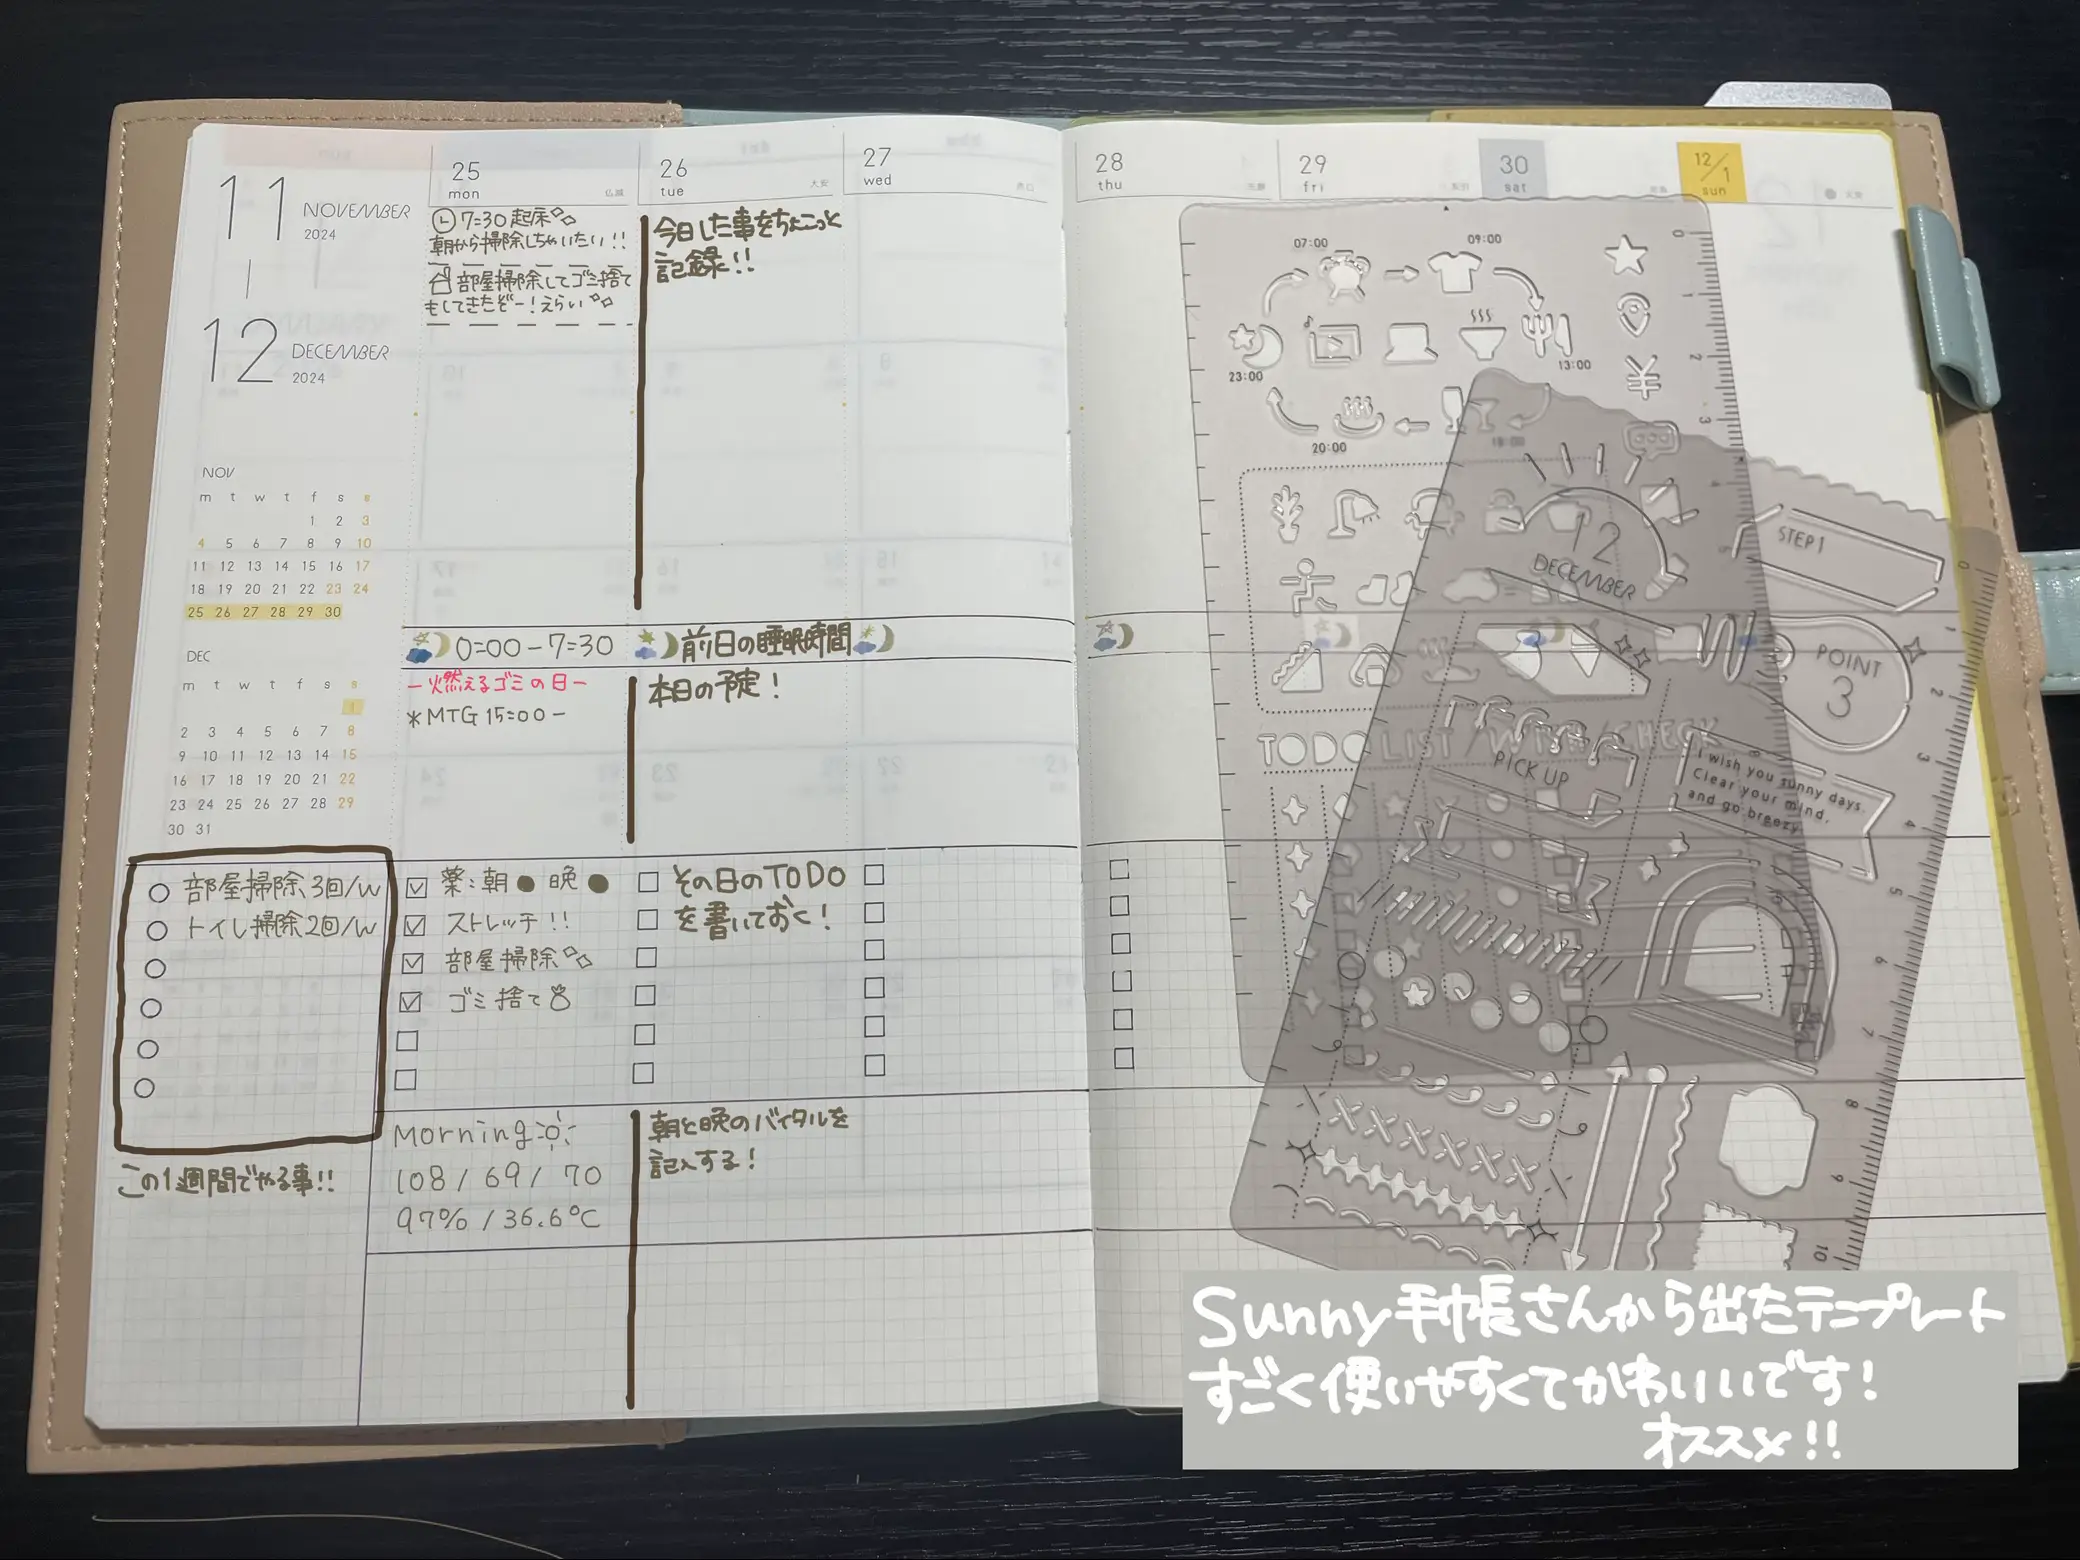 11 NOVEMBER
2024
12 DECEMBER
2024
NOV
m t w t f s s
1 2 3
4 5 6 7 8 9 10
11 12 13 14 15 16 17
18 19 20 21 22 23 24
25 26 27 28 29 30
DEC
m t w t f s s
1
2 3 4 5 6 7 8
9 10 11 12 13 14 15
16 17 18 19 20 21 22
23 24 25 26 27 28 29
30 31
部屋掃除3回/w
トイレ掃除2回/w
この1週間でやる事!!
25
mon 仏滅
7:30起床
朝から掃除しちゃいたい!!
部屋掃除してゴミ捨て
もしてきたぞー!えらい
0:00-7:30
-燃えるゴミの日-
*MTG 15:00-
薬:朝● 晩●
ストレッチ!!
部屋掃除
ゴミ捨て
Morning
108/69/70
97%/36.6℃
26
tue 大安
今日した事をちょこっと
記録!!
前日の睡眠時間
本日の予定!
その日のTODO
を書いておく!
朝と晩のバイタルを
記入する!
27
wed 赤口
28
thu
29
fri
30
sat
12/1
sun
07:00 09:00
23:00 13:00
20:00 18:00
TODO LIST / WISH / CHECK
12
DECEMBER
STEP 1
POINT
3
PICK UP
I wish you sunny days.
Clear your mind,
and go breezy
0 1 2 3 4 5
0 1 2 3 4 5 6 7 8 9 10
Sunny手帳さんから出たテンプレート
すごく使いやすくてかわいいです!
オススメ!!